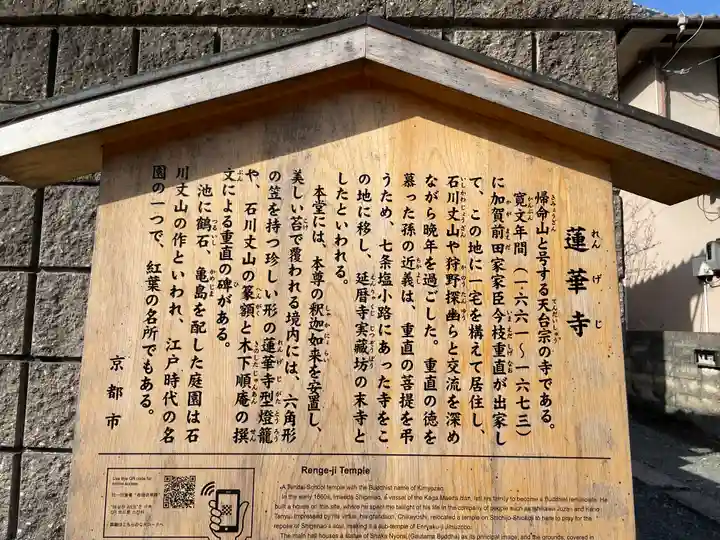 蓮華寺
れんげじ
帰命山と号する天台宗の寺である。
寛文年間(一六六一〜一六七三)
に加賀前田家家臣今枝重直が出家し
て、この地に一宅を構えて居住し、
石川丈山や狩野探幽らと交流を深め
ながら晩年を過ごした。重直の徳を
慕った孫の近義は、重直の菩提を弔
うため、七条塩小路にあった寺をこ
の地に移し、延暦寺実蔵坊の末寺と
したといわれる。
本堂には、本尊の釈迦如来を安置し、
美しい苔で覆われる境内には、六角形
の笠を持つ珍しい形の蓮華寺型燈籠
や、石川丈山の篆額と木下順庵の撰
文による重直の碑がある。
池に鶴石、亀島を配した庭園は石
川丈山の作といわれ、江戸時代の名
園の一つで、紅葉の名所でもある。
京都市
Renge-ji Temple
A Tendai-School temple with the Buddhist name of Kimyozan.
In the early 1660s, Imaeda Shigenao, a vassal of the Kaga Maeda clan, left his family to become a Buddhist
built a house on this site, where he spent the twilight of his life in the company of people such as Ishikawa Jozan and Kano
Tanyu. Impressed by his virtue, his grandson, Chikayoshi, relocated a temple on Shichijo-Shiokoji to here to pray for the
repose of Shigenao's soul, making it a sub-temple of Enryaku-ji Jitsuzobo.
The main hall houses a statue of Shaka Nyorai (Gautama Buddha) as its principal image, and the grounds, covered in
Use the QR code for